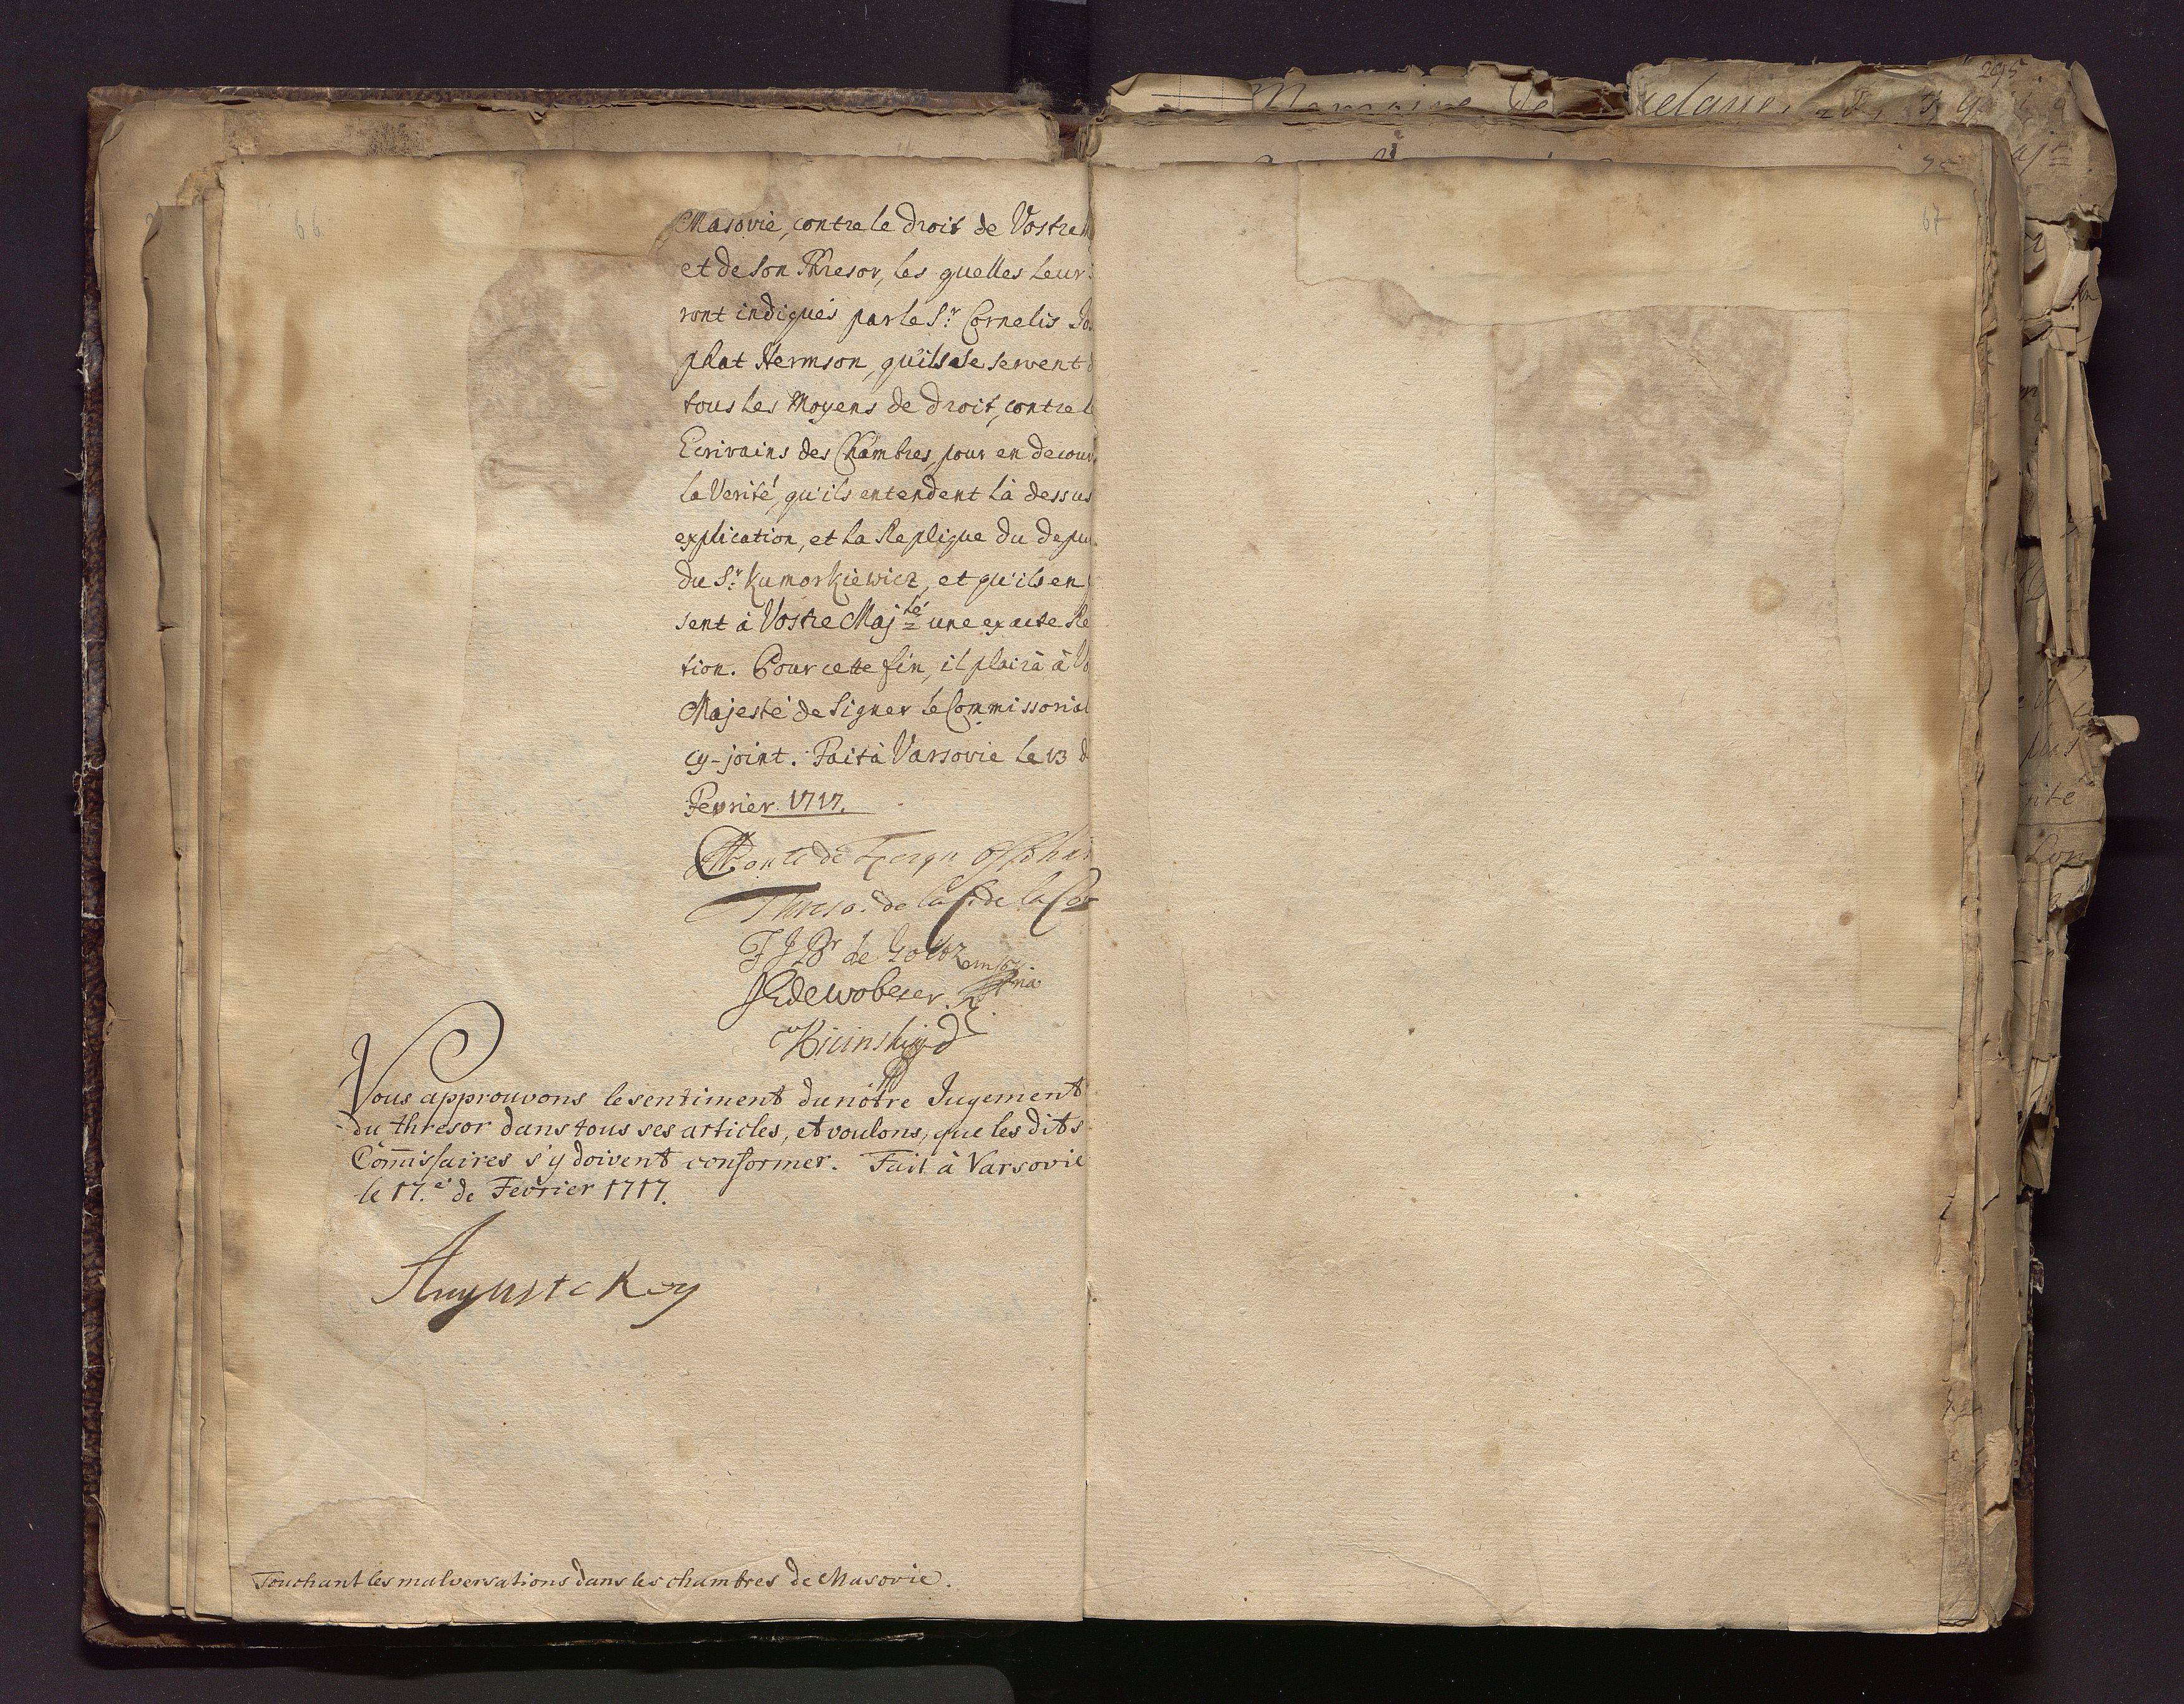 66
Masovie, contre le droit de Vostre
et de son Thresor, les quelles leur s
ront indiqués par le Sr. Cornelis Jo
phat Hermson, qu'ils se servent d
tous les Moyens de droit, contre l
Ecrivains des Chambres, pour en decouv
la Verité, qu'ils entendent là dessus
explication, et la Replique du depu
du Sr. Kumorkiewicz, et qu'ils en
sent à Vostre Majté une exacte Re
tion. Pour cette fin, il plairà à Vo
Majesté de Signer le Commissorial
cy-joint. Fait à Varsovie le 13 d
Fevrier. 1717.
Conte de
Threso. de la C. de la Cor
F J Br de Goltz
JE de Wobeser
Nous approuvons le sentiment du nôtre Jugement
du thresor dans tous ses articles, et voulons, que les dits
Com̄issaires s'y doivent conformer. Fait à Varsovie
le 17.e de Fevrier 1717.
Auguste Roy
Touchant les malversations dans les chambres de Masovie.
67
Memoire de
295